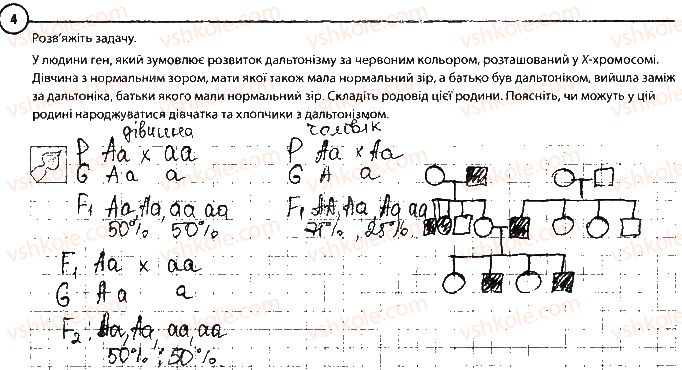 4
Розв'яжіть задачу.
У людини ген, який зумовлює розвиток дальтонізму за червоним кольором, розташований у X-хромосомі.
Дівчина з нормальним зором, мати якої також мала нормальний зір, а батько був дальтоніком, вийшла заміж
за дальтоніка, батьки якого мали нормальний зір. Складіть родовід цієї родини. Поясніть, чи можуть у цій
родині народжуватися дівчатка та хлопчики з дальтонізмом.
дівчина чоловік
P Aa x aa P Aa x Aa
G A a a G A a
F1 Aa, Aa, aa, aa F1 AA, Aa, Aa, aa
50% 50% 75% , 25%
F1 Aa x aa
G A a a
F2 Aa, Aa, aa, aa
50% ; 50%